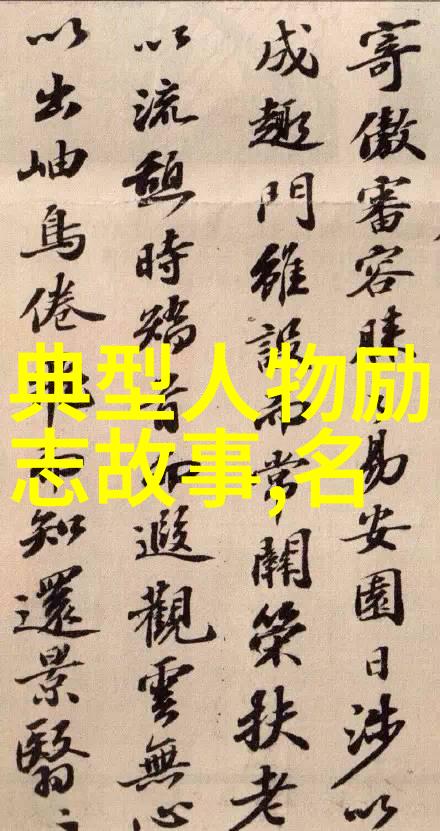 寄傲審容膝之易安園日涉以
成趣門雖設而常關策扶老
以流憩時矯首而遐觀雲無心
以出岫鳥倦飛而知還景翳
典型人物励
志故事,名